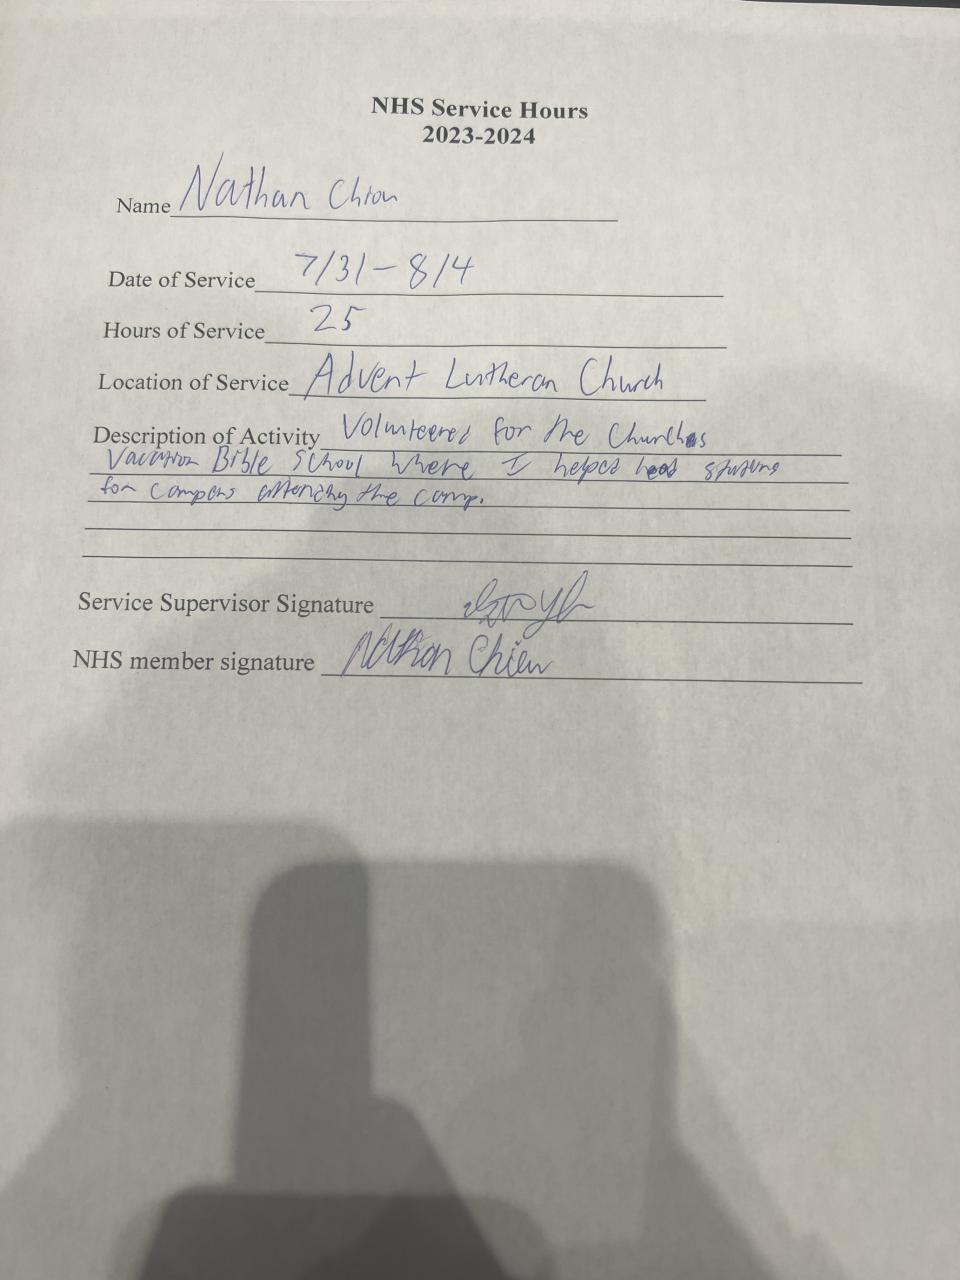 NHS Service Hours
2023-2024
Name Nathan Chien
Date of Service 7/31-8/4
Hours of Service 25
Location of Service Advent Lutheran Church
Description of Activity Volunteered for the Churches
Vacation Bible School where I helped lead stations
for campers attending the camp.
Service Supervisor Signature
NHS member signature Nathan Chien